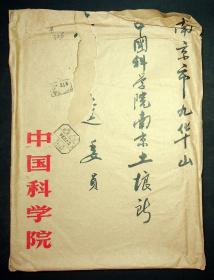 南京市九华山
中國科学院南京土壤所
委員
中国科学院